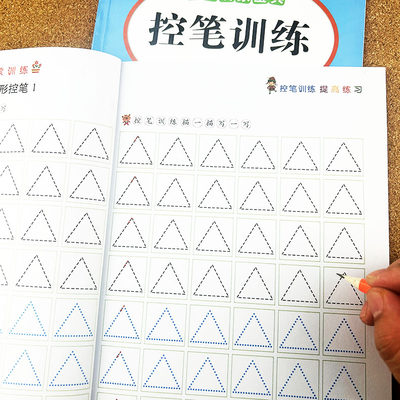 控笔训练
训练
形控笔1
写
控笔训练 提高练习
控笔训练描一描写一写